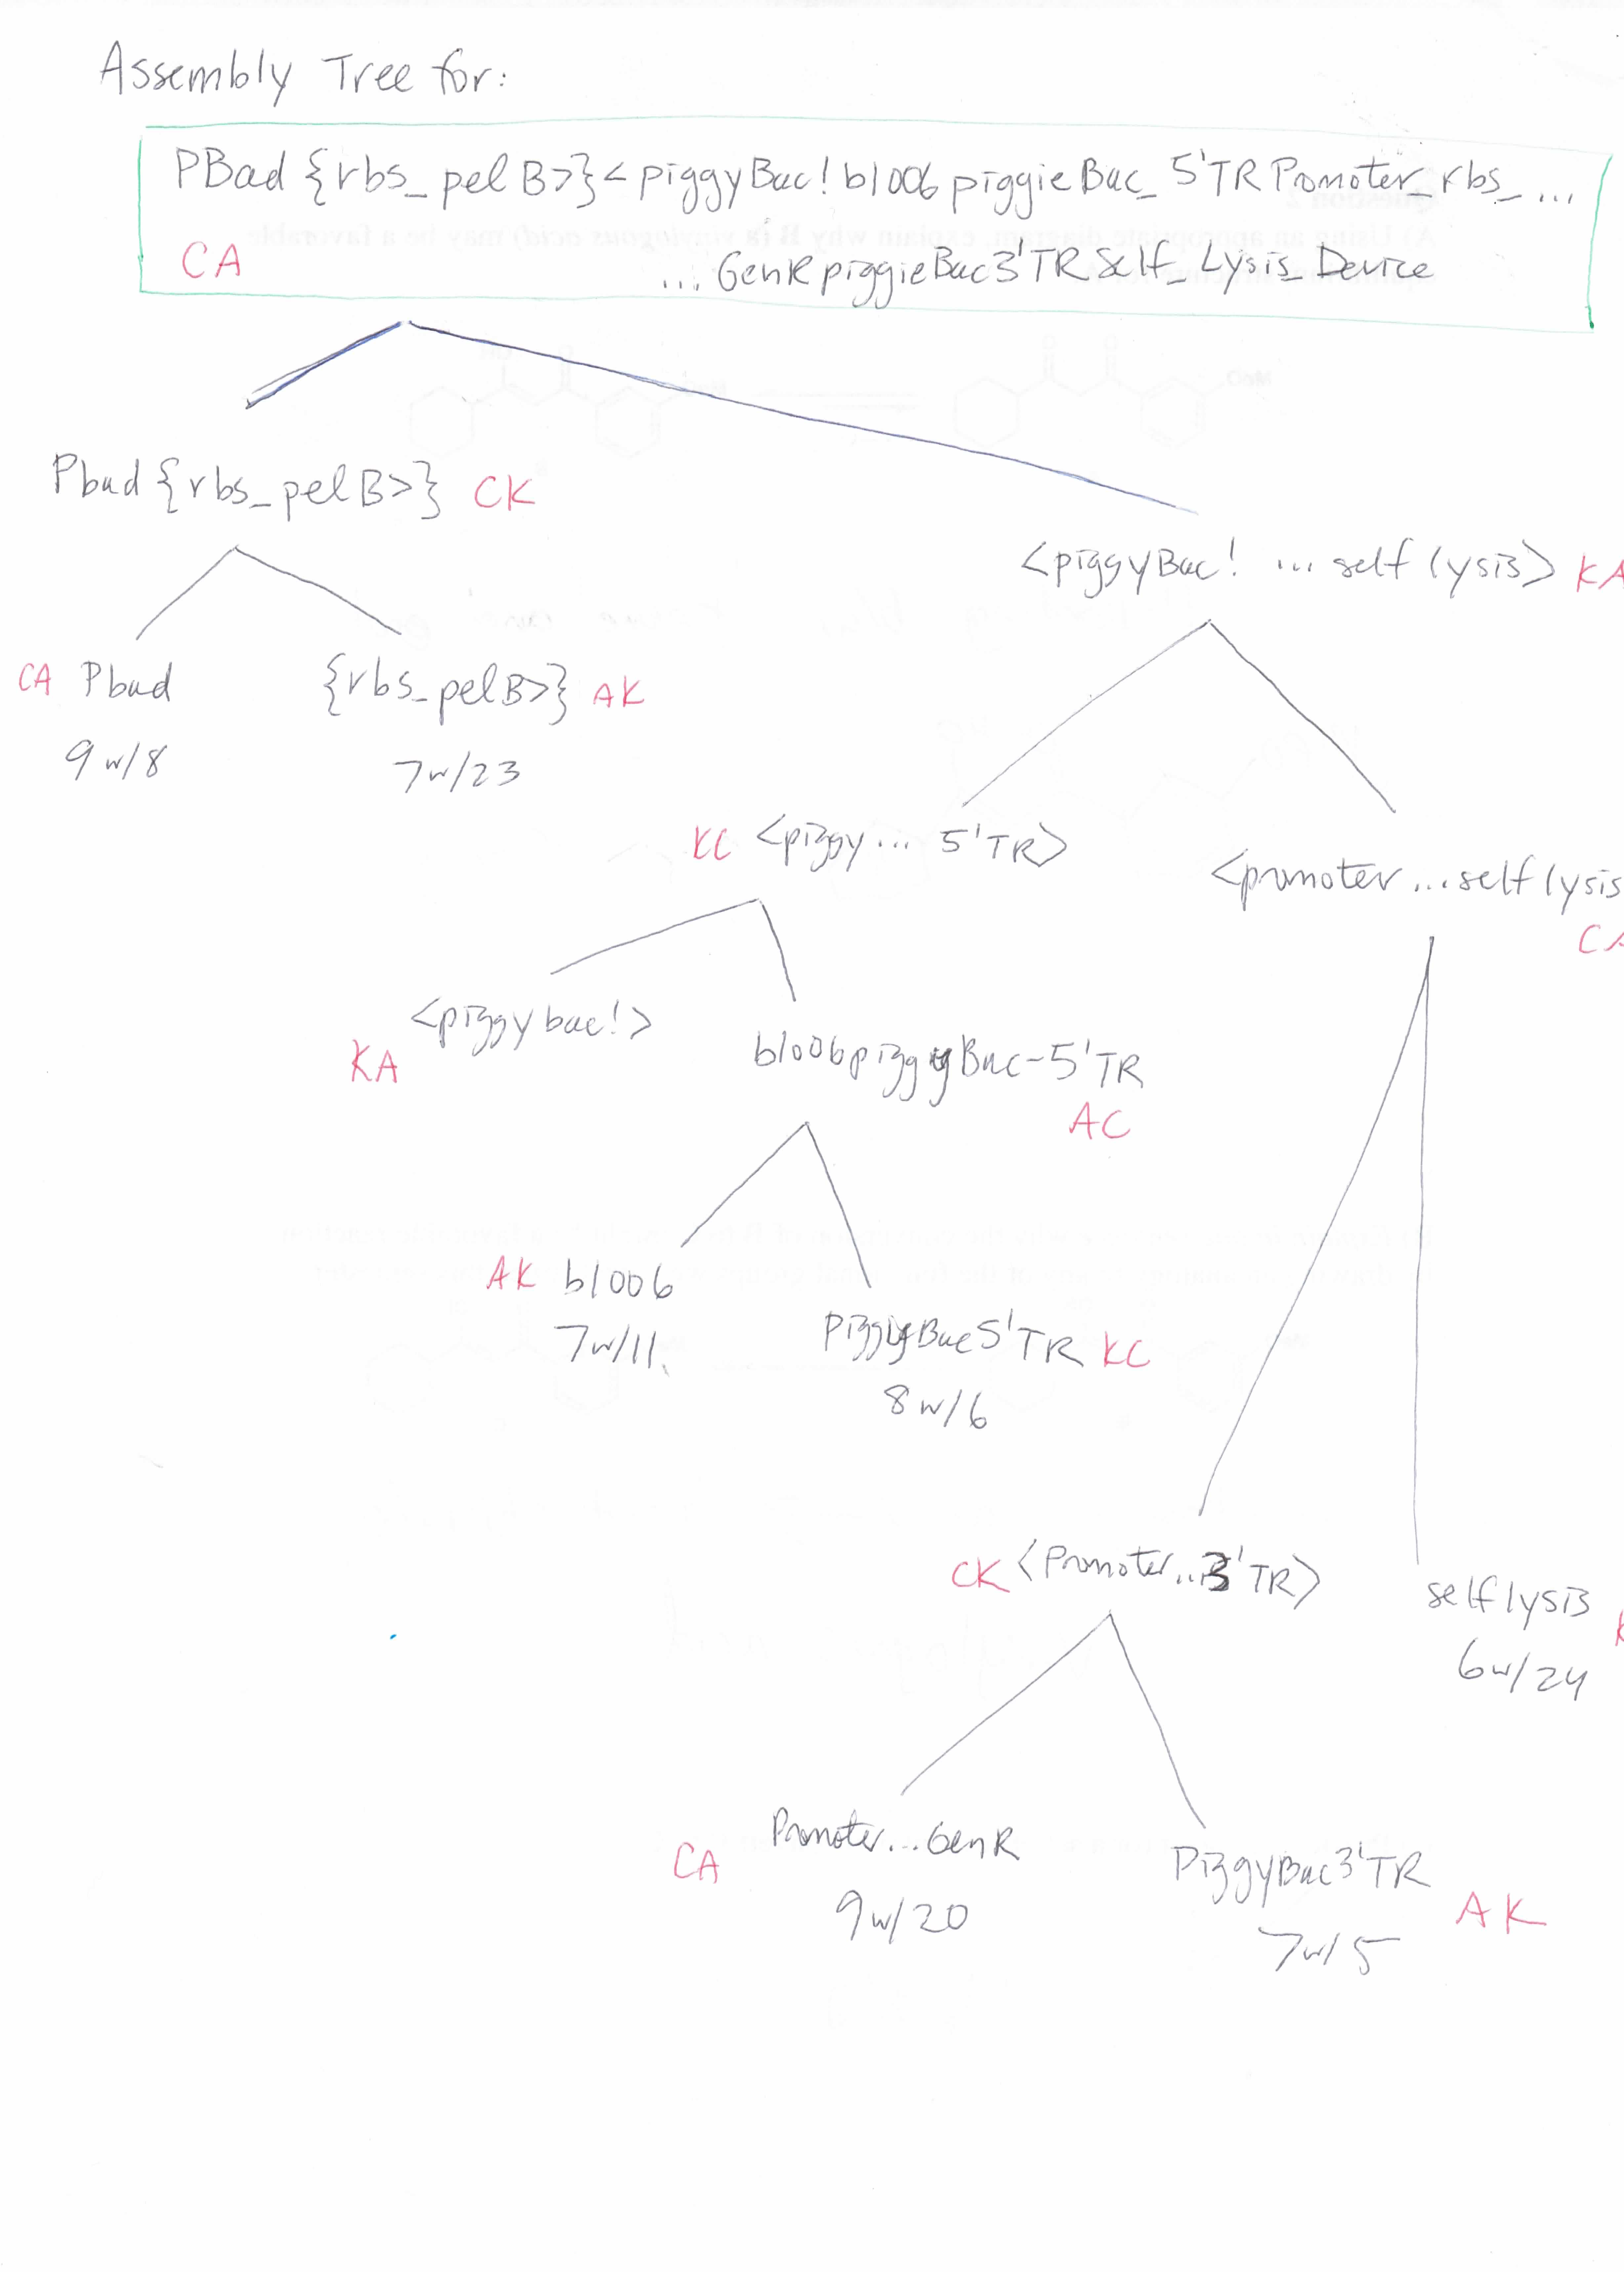 Assembly Tree for:
PBad {rbs_pelB>}<piggyBac! b1006 piggieBac_5'TR Promoter_rbs_...
CA
...GenR piggieBac3'TR Self_Lysis_Device
Pbad {rbs_pelB>} CK
<piggyBac! ... self lysis> KA
CA Pbad
{rbs_pelB>} AK
9 w/8
7w/23
KC <piggy... 5'TR>
<promoter...self lysis
CA
<piggybac!>
KA
b1006piggyBac-5'TR
AC
AK b1006
7w/11
PiggyBac5'TR KC
8 w/6
CK <Promoter..3'TR>
self lysis K
6w/24
Promoter...GenR
CA
9w/20
PiggyBac3'TR
AK
7w/5